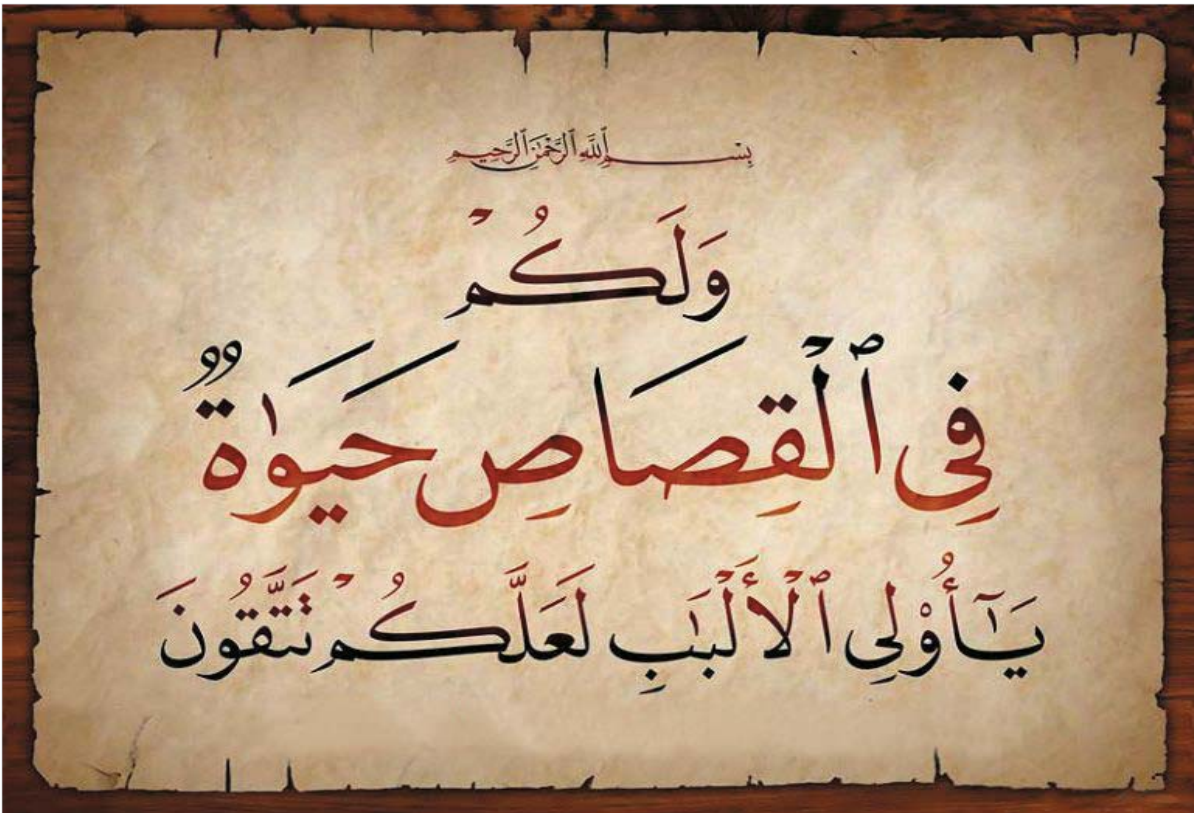 بِسْمِ ٱللَّهِ ٱلرَّحْمَٰنِ ٱلرَّحِيمِ
وَلَكُمْ
فِى ٱلْقِصَاصِ حَيَوٰةٌ
يَـٰٓأُو۟لِى ٱلْأَلْبَـٰبِ لَعَلَّكُمْ تَتَّقُونَ